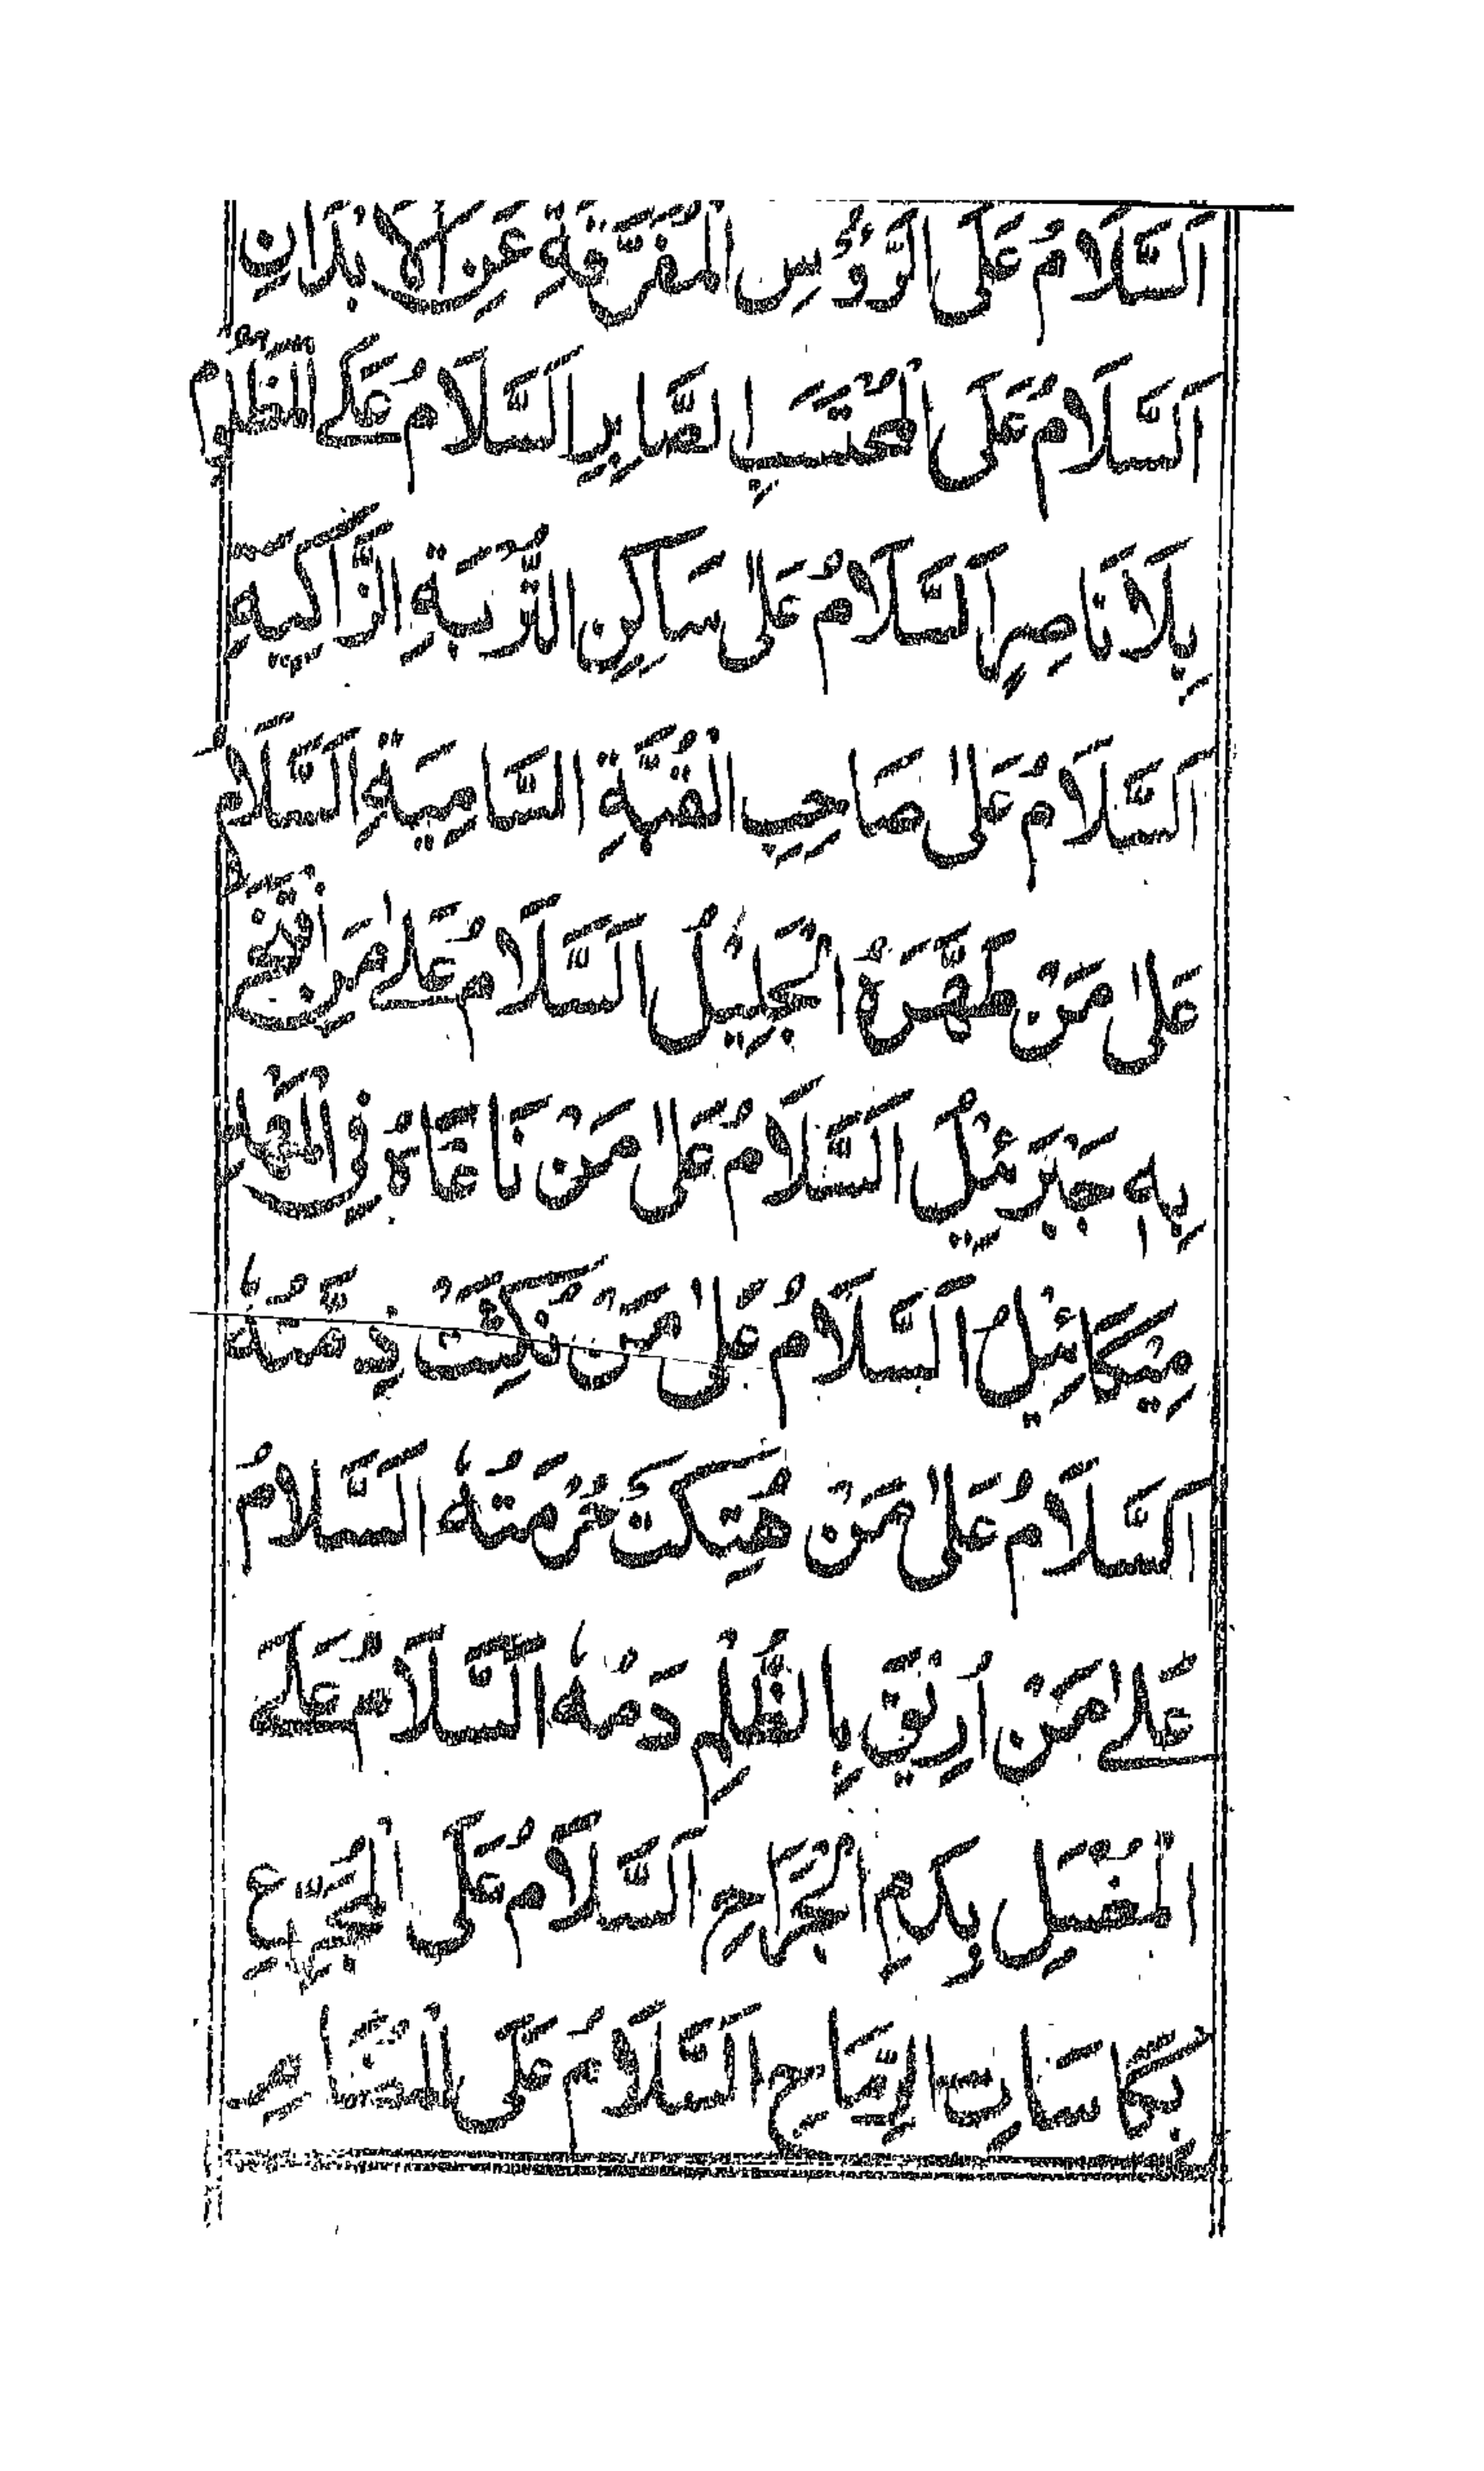 اَلسَّلَامُ عَلَى الرُّؤُسِ الْمُفَرَّقَةِ عَنِ الْاَبْدَانِ
اَلسَّلَامُ عَلَى الْمُحْتَسَبِ الصَّابِرِ اَلسَّلَامُ عَلَے الْمَظْلُوْمِ
بِلَا نَاصِرٍ اَلسَّلَامُ عَلٰى سَاكِنِ التُّرْبَةِ الزَّاكِيَةِ
اَلسَّلَامُ عَلٰى صَاحِبِ الْقُبَّةِ السَّامِيَةِ اَلسَّلَامُ
عَلٰى مَنْ طَهَّرَهُ الْجَلِيْلُ اَلسَّلَامُ عَلٰے مَنِ افْتَخَرَ
بِهٖ جَبْرَئِيْلُ اَلسَّلَامُ عَلٰى مَنْ نَاغَاهُ فِى الْمَهْدِ
مِيْكَائِيْلُ اَلسَّلَامُ عَلٰى مَنْ نُكِثَتْ ذِمَّتُهٗ
اَلسَّلَامُ عَلٰى مَنْ هُتِكَتْ حُرْمَتُهٗ اَلسَّلَامُ
عَلٰے مَنْ اُرِيْقَ بِالظُّلْمِ دَمُهٗ اَلسَّلَامُ عَلَے
الْمُغْسَلِ بِدَمِ الْجَرَاحِ اَلسَّلَامُ عَلَى الْمُجَرَّعِ
بِكَاسَاتِ الرِّمَاحِ اَلسَّلَامُ عَلَى